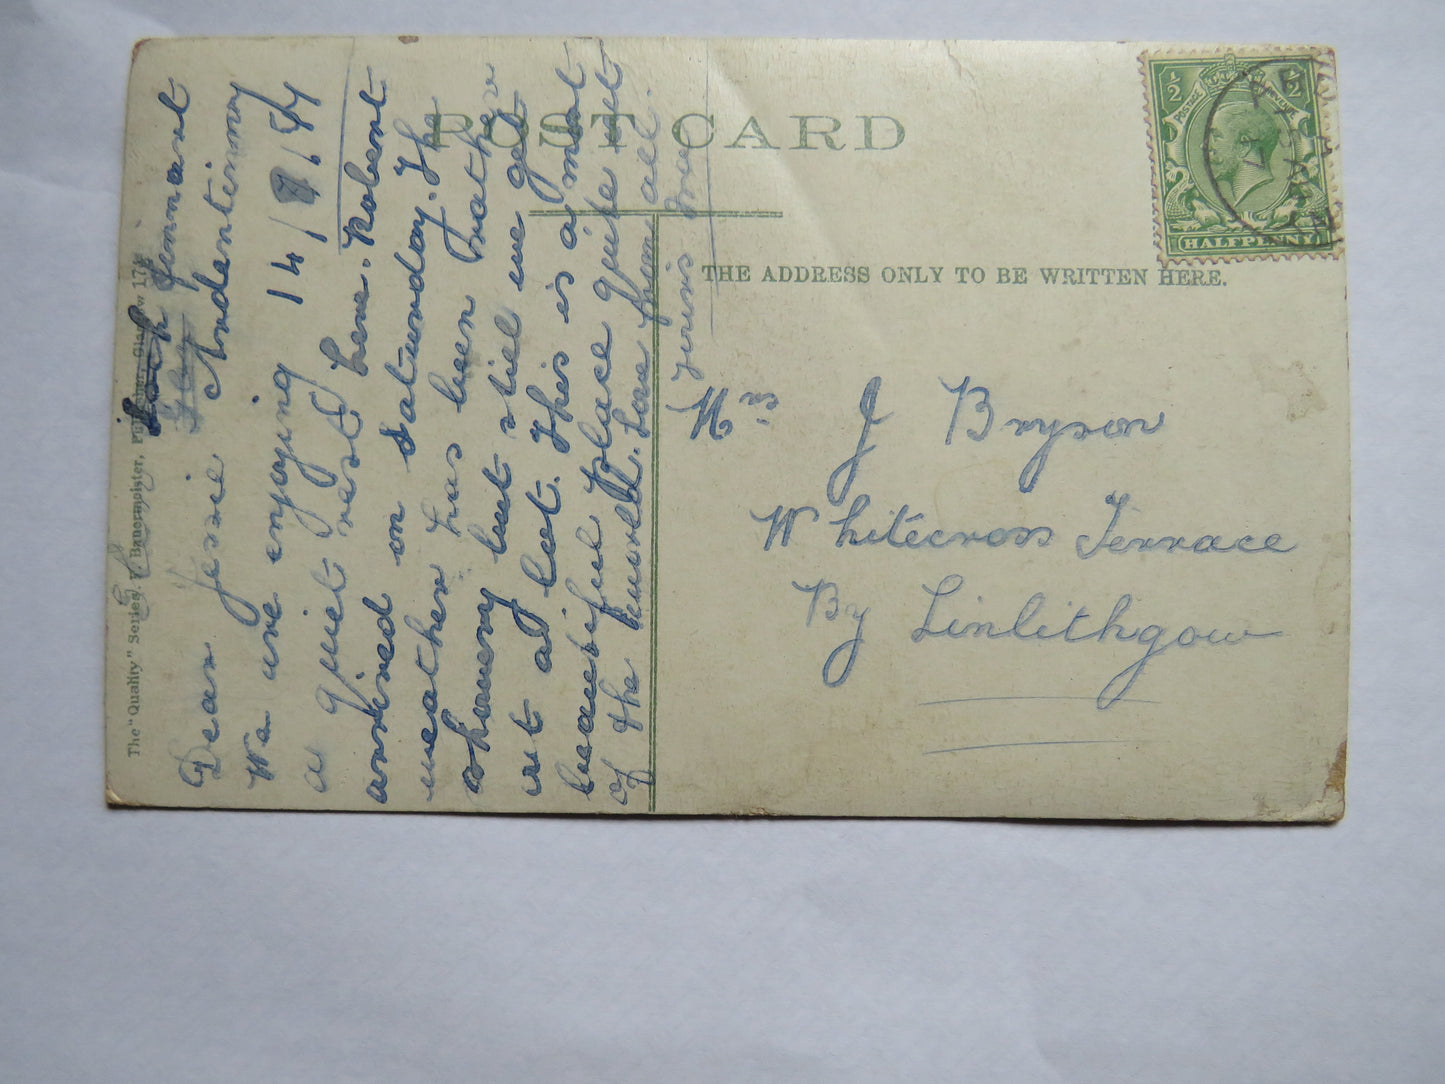 POST CARD
THE ADDRESS ONLY TO BE WRITTEN HERE.
1/2 1/2
POSTAGE
HALFPENNY
Mrs J Bryson
Whitecross Terrace
By Linlithgow
Finnart
Ardentinny
14/8/
Dear Jessie
We are enjoying
a quiet rest here. Robert
arrived on Saturday. The
weather has been rather
showery but still we get
out a lot. This is a most
beautiful place quite out
of the world. Love from all.
The "Quality" Series. F. Bauermeister, Publisher, Glasgow